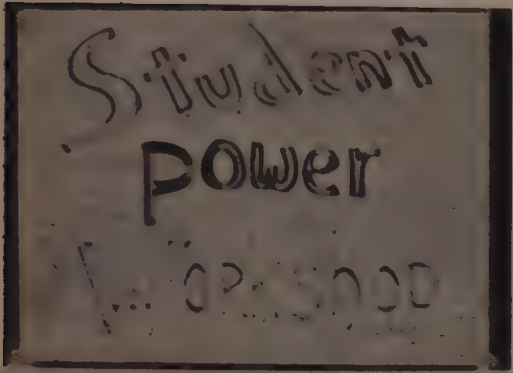 Student
power
Workshop